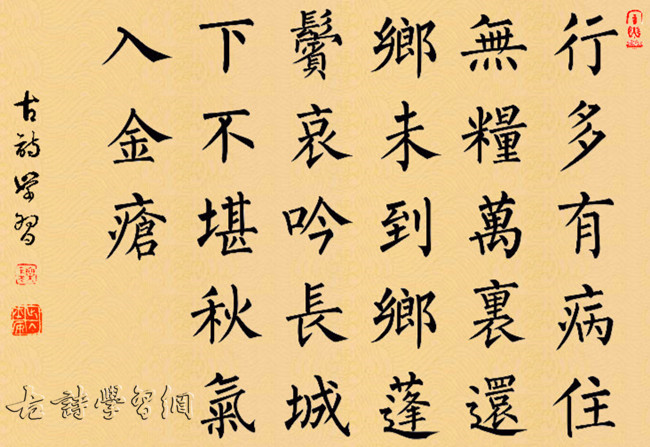 行多有病住
無糧萬裏還
鄉未到鄉蓬
鬢哀吟長城
下不堪秋氣
入金瘡
古詩學習
古詩學習網